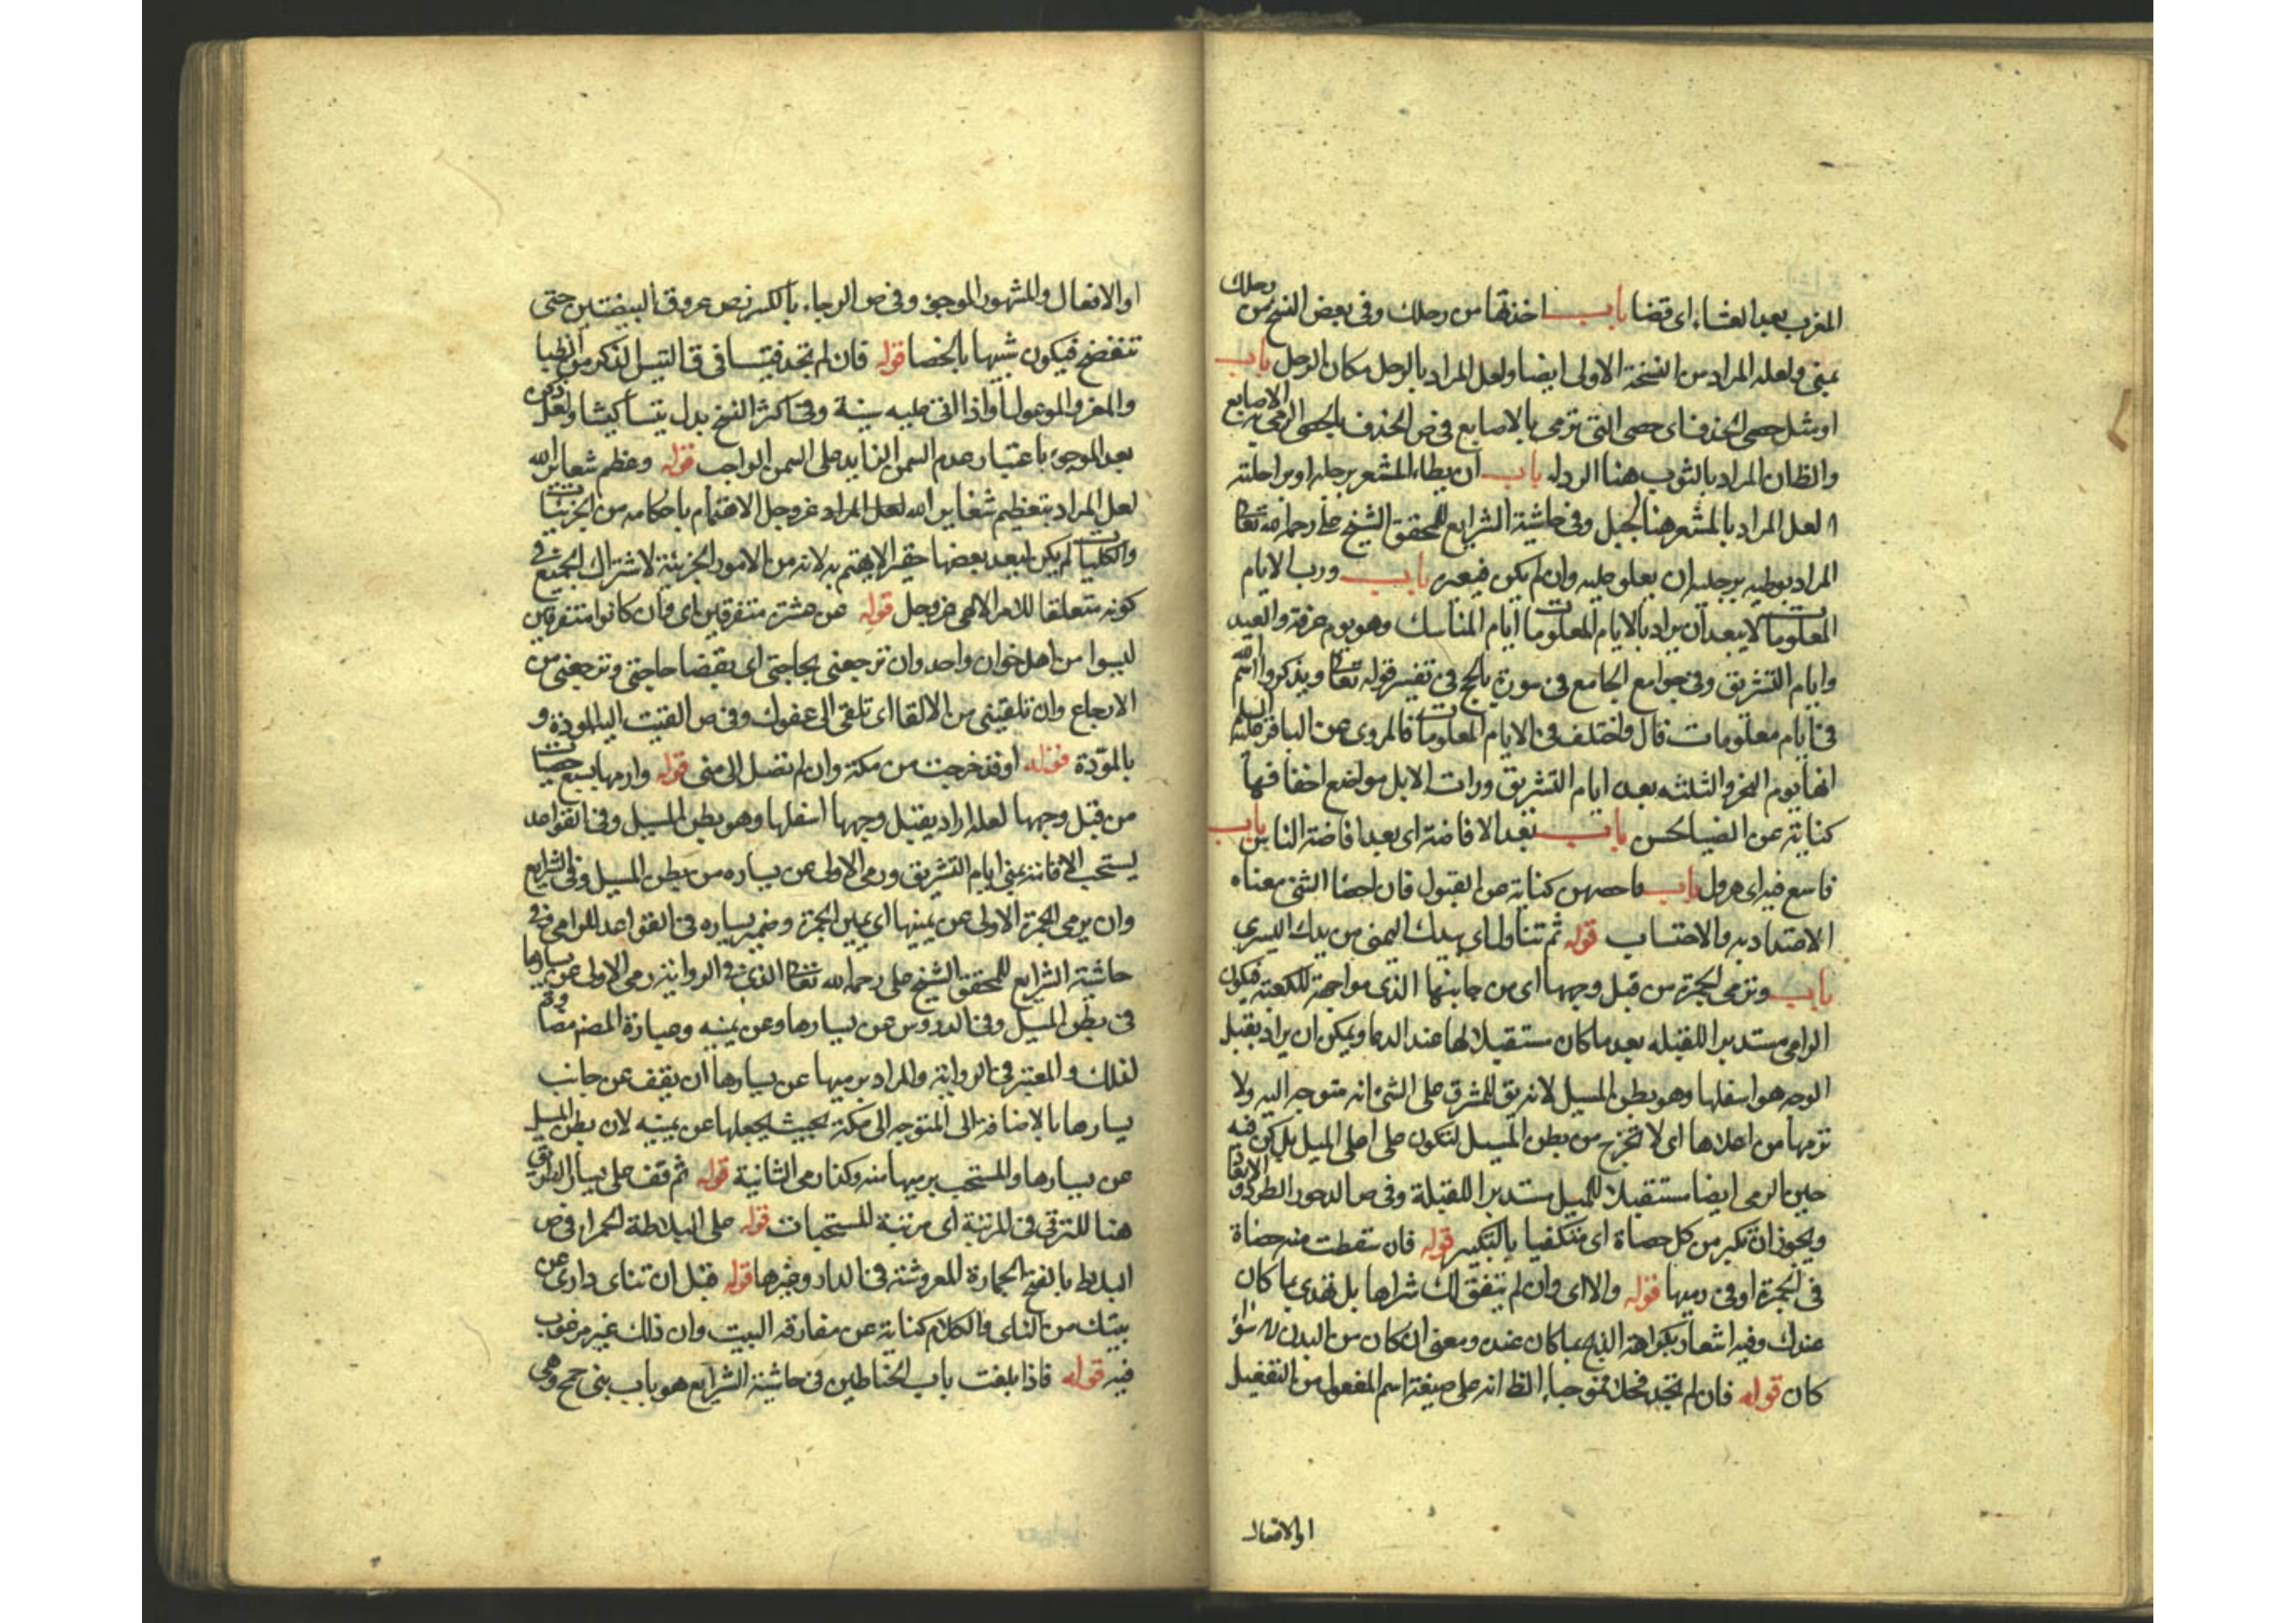 المغرب بعد العشاء اى قضا باب اخذتها من رحلك وفى بعض النسخ من رحلك
بمنى ولعله المراد من النسخة الاولى ايضا ولعل المراد بالرحل مكان الرحل باب
او مثل حصى الخذف اى حصى التى ترمى بالاصابع فى ص الخذف بالحصى الرمى به الاصابع
والظ ان المراد بالثوب هنا الرداء باب ان يطاء المشعر برجله او براحلته
لعل المراد بالمشعر هنا الجبل وفى حاشية الشرايع للمحقق الشيخ على رحمه الله تعالى
المراد بوطيه برجله ان يعلو عليه وان لم يكن فبعيره باب ورب الايام
المعلومات لا يبعد ان يراد بالايام المعلومات ايام المناسك وهو يوم عرفة والعيد
وايام التشريق وفى جوامع الجامع فى سورة الحج فى تفسير قوله تعالى ويذكروا اسم الله
فى ايام معلومات قال واختلف فى الايام المعلومات فالمروى عن الباقر عليه السلام
انها يوم النحر والثلثه بعده ايام التشريق ورات الابل مواضع اخفافها
كناية عن الضيا الحسن باب بعد الافاضة اى بعد افاضة الناس باب
فاسع فيه اى هرول باب فاحصهن كناية عن القبول فان احصا الشئ معناه
الاعتداد به والاحتساب قوله ثم تناول اى بيدك اليمنى من يدك اليسرى
باب وترمى الجمرة من قبل وجهها اى من جانبها الذى مواجهة للكعبة فيكون
الرامى مستدبرا للقبله بعد ما كان مستقبلا لها عند الدعا ويمكن ان يراد بقبل
الوجه هو اسفلها وهو بطن المسيل لانه يق للمشرف على الشئ انه متوجه اليه ولا
ترمها من اعلاها اى لا تخرج من بطن المسيل لتكون على اعلى الميل بل كن فيه
حين الرمى ايضا مستقبلا للميل مستدبرا للقبلة وفى ص الدحور الطرد والابعاد
ويجوز ان تكبر من كل حصاة اى مكتفيا بالتكبير قوله فان سقطت منه حصاة
فى الجمرة او فى رميها قوله والا اى وان لم يتفق لك شراها بل تفدى بما كان
عندك وفيه اشعار بكراهة الذبح بما كان عنده ومعنى ان كان من البدن
كان قوله فان لم تجد فحلا فموجبا الظ انه على صيغة اسم المفعول من التفعيل
او الافعال
او الافعال والمشهور الموجوء وفى ص الوجاء بالكسر رض عروق البيضتين حتى
تنفضخ فيكون شبيها بالخصا قوله فان لم تجد فتيسا فى ق التيس الذكر من الظبا
والمعز والوعول او اذا اتى عليه سنة وفى اكثر النسخ بدل تيسا كبشا ولعل ذكره
بعد الموجوء باعتبار عدم السمن الزايد على السمن الواجب قوله وعظم شعاير الله
لعل المراد بتعظيم شعاير الله لعل المراد عز وجل الاهتمام باحكامه من الجزئيات
والكليات لم يكن ليعد بعضها حقيرا لا يهتم به لانه من الامور الجزئية لاشتراك الجميع فى
كونه متعلقا للامر الالهى عز وجل قوله عن عشرة متفرقين اى وان كانوا متفرقين
ليسوا من اهل خوان واحد وان ترجعنى بحاجتى اى بقضا حاجتى وترجعنى من
الارجاع وان تلقيننى من الالقا اى تلقى الى عفوك وفى ص القيت اليه المودة و
بالمودة قوله او قد خرجت من مكة وان لم تصل الى منى قوله وارمها بسبع حصيات
من قبل وجهها لعله اراد بقبل وجهها اسفلها وهو بطن المسيل وفى القواعد
يستحب الاقامة بمنى ايام التشريق ورمى الاولى عن يساره من بطن المسيل وفى الشرايع
وان يرمى الجمرة الاولى عن يمينها اى يمين الجمرة وضمير يساره فى القواعد للرامى وفى
حاشية الشرايع للمحقق الشيخ على رحمه الله تعالى الذى فى الرواية رمى الاولى عن يسارها
فى بطن المسيل وفى الدروس عن يسارها وعن يمينه وعبارة المصنف
لذلك والمعتبر فى الرواية والمراد برميها عن يسارها ان يقف عن جانب
يسارها بالاضافة الى المتوجه الى مكة بحيث يجعلها عن يمينه لان بطن المسيل
عن يسارها والمستحب برميها منه وكذا رمى الثانية قوله ثم قف على يسار الطريق
هنا للترقى فى المرتبة اى مرتبة المستحبات قوله على البلاطة الحمرا فى ص
البلاط بالفتح الحجارة المفروشة فى الدار وغيرها قوله قبل ان تناى دارى عن
بيتك من الناى والكلام كناية عن مفارقة البيت وان ذلك غير مرغوب
فيه قوله فاذا بلغت باب الحناطين فى حاشية الشرايع هو باب بنى جمح وهى